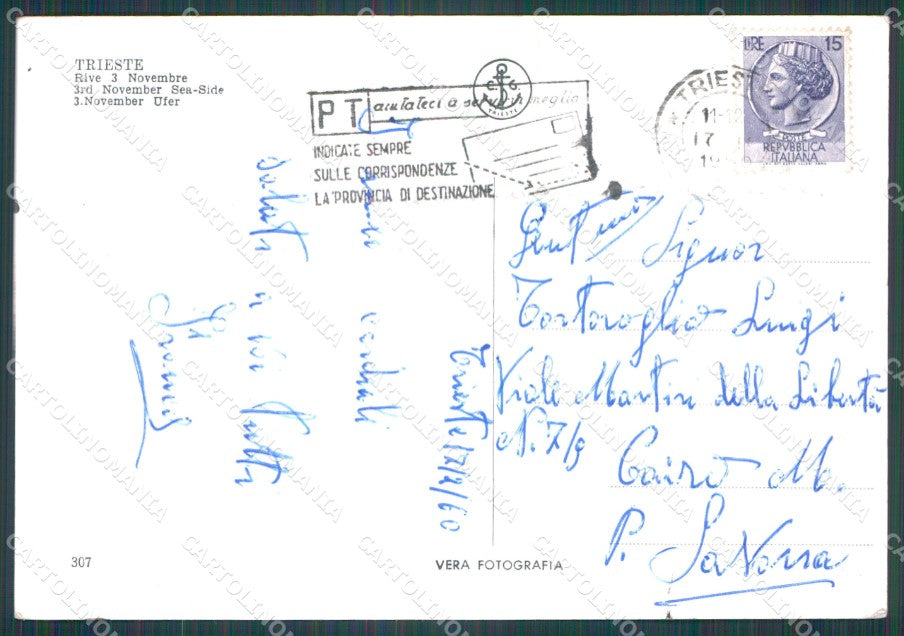 TRIESTE
Rive 3 Novembre
3rd November Sea-Side
3.November Ufer
P T aiutateci a servirvi meglio
C G
TRIESTE
INDICATE SEMPRE
SULLE CORRISPONDENZE
LA PROVINCIA DI DESTINAZIONE
TRIEST
11-12
17
19
LIRE 15
POSTE
REPVBBLICA
ITALIANA
Trieste 17/2/60
cordiali
saluti a voi tutti
Gent.mo Signor
Tortoroglio Luigi
Viale Martiri della Libertà
N. 7/9
Cairo M.
P. Savona
307
VERA FOTOGRAFIA
CARTOLINOMANIA